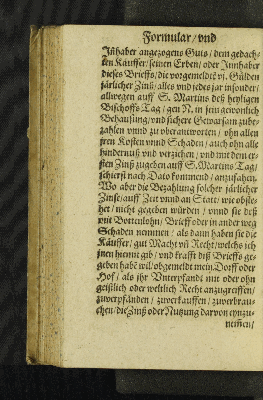 Formular / vnd
Jñhaber angezogens Guts / dem gedach-
ten Kauffer / seinen Erben / oder Jnnhaber
dieses Brieffs / die vorgemeldte vj. Gülden
järlicher Zinß / alles vnd jedes jar insonder /
allwegen auff S. Martins deß heyligen
Bischoffs Tag / gen N. in jren gewonlich
Behausung / vnd sichere Gewarsam zube-
zahlen vnnd zu vberantworten / ohn allen
jren Kosten vnnd Schaden / auch ohn alle
hindernuß vnd verziehen / vnd mit dem er-
sten Zinß zugeben auff S. Martins Tag /
schierst nach Dato kommend / anzufahen.
Wo aber die Bezahlung solcher järlicher
Zinse / auff Zeit vnnd an Statt / wie obste-
het / nicht gegeben würden / vnnd sie deß
mit Bottenlohn / Brieff oder in ander weg
Schaden nemmen / als dann haben sie die
Käuffer / gut Macht vñ Recht / welchs ich
jnen hiemit gib / vnd krafft diß Brieffs ge-
geben habē wil / obgemeldt mein Dorff oder
Hof / als jhr Vnterpfandt mit oder ohn
geistlich oder weltlich Recht anzugreiffen /
zuuerpfänden / zuuerkauffen / zuuerbrau-
chen / die Zinß oder Nutzung daruon eynzu-
nemen /